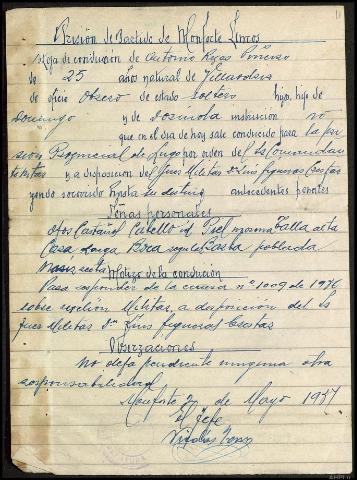 Prisión de Partido de Monforte Lemos
Hoja de conducion de Antonio
de 25 años natural de
de oficio Obrero de estado soltero hijo, hijo de
Domingo y de Dosinda instrucción no
que en el dia de hoy sale conducido para la pri
sion Provincial de Lugo por orden del Sr Comandan
te y a disposición del Juez Militar Dn Luis figueras
yendo socorrido hasta su destino antecedentes
Señas personales
Ojos Castaños Cabello id Piel morena Talla alta
Cara larga Boca regular Barba poblada
Nariz recta Motivo de la conducion
Pasa respondiendo de la causa nº 1009 de 19
sobre rebelión Militar, a disposición del Sr
Juez Militar Dn Luis figueras
Observaciones
No deja pendiente ninguna otra
responsabilidad
Monforte 2 de Mayo 1937
El Jefe